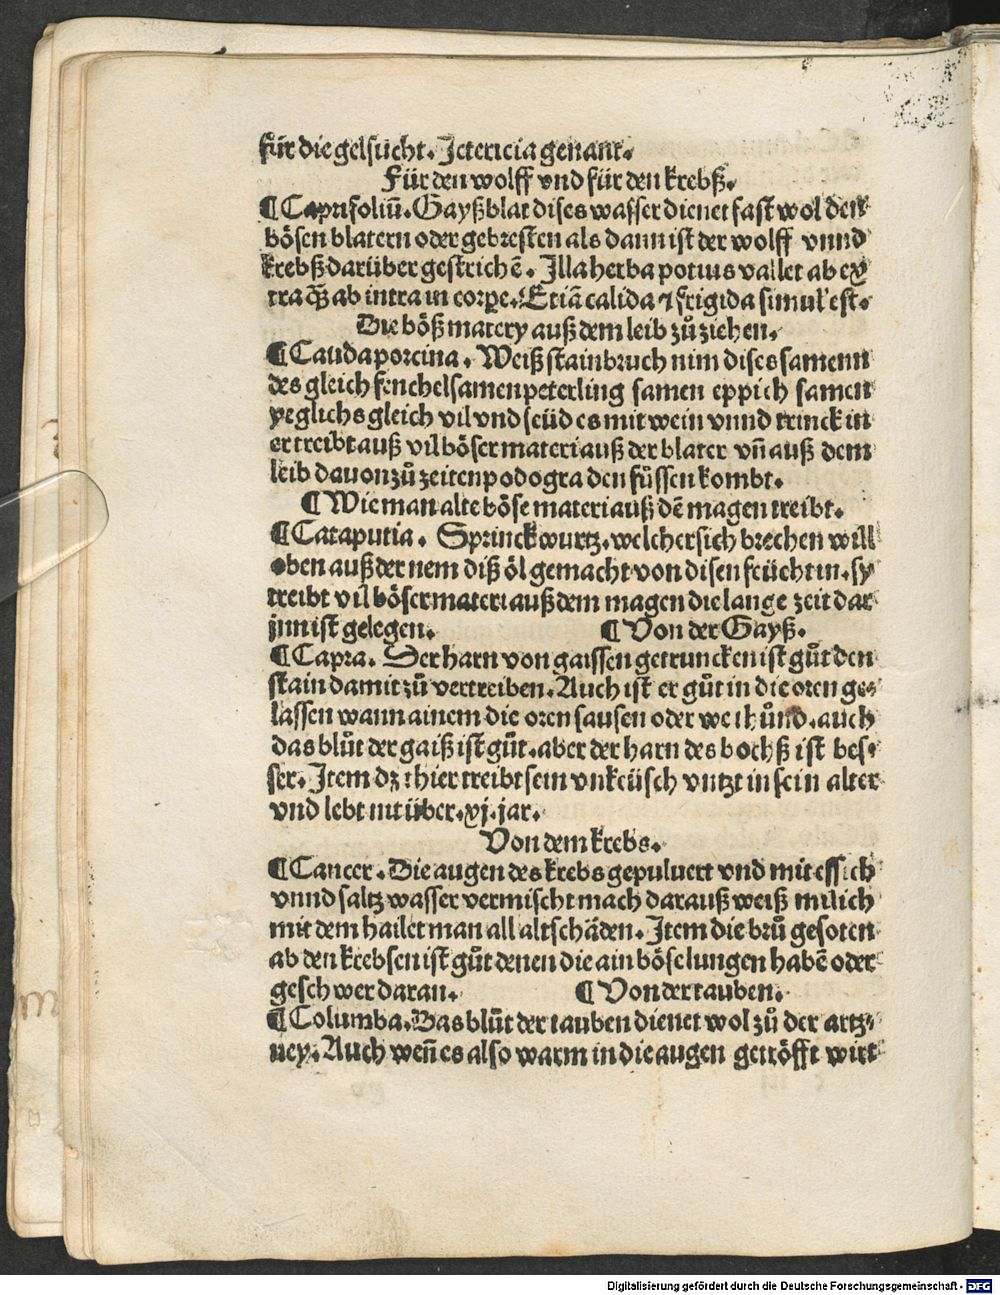 für die gelsucht. Ictericia genant.
Für den wolff vnd für den krebß.
¶ Caprifoliū. Gayßblat dises wasser dienet fast wol den
bösen blatern oder gebresten als dann ist der wolff vnnd
krebß darüber gestrichē. Illa herba potius vallet ab ex
tra ꝙ̃ ab intra in corꝑe. Etiā calida ⁊ frigida simul est.
Die böß matery auß dem leib zů ziehen.
¶ Cauda porcina. Weiß stainbruch nim dises samenn
des gleich fenchelsamen peterling samen eppich samen
yeglichs gleich vil vnd seüd es mit wein vnnd trinck in
er treibt auß vil böser materi auß der blater vn̄ auß dem
leib davon zů zeiten podogra den füssen kombt.
¶ Wie man alte böse materi auß dē magen treibt.
¶ Cataputia. Sprinckwurtz. welcher sich brechen will
oben auß der nem diß öl gemacht von disen feücht in. sy
treibt vil böser materi auß dem magen die lange zeit dar
jnn ist gelegen. ¶ Von der Gayß.
¶ Capra. Der harn von gaissen getruncken ist gůt den
stain damit zů vertreiben. Auch ist er gůt in die oren ge⸗
lassen wann ainem die oren sausen oder we thůnd. auch
das blůt der gaiß ist gůt. aber der harn des bochß ist bes⸗
ser. Item dz thier treibt sein vnkeüsch vntzt in sein alter
vnd lebt nit über. xj. jar.
Von dem krebs.
¶ Cancer. Die augen des krebs gepuluert vnd mit essich
vnnd saltz wasser vermischt mach darauß weiß milich
mit dem hailet man all altschäden. Item die brů gesoten
ab den krebsen ist gůt denen die ain böse lungen habē oder
geschwer daran. ¶ Von der tauben.
¶ Columba. Das blůt der tauben dienet wol zů der artz⸗
ney. Auch weñ es also warm in die augen getröfft wirt
Digitalisierung gefördert durch die Deutsche Forschungsgemeinschaft - DFG